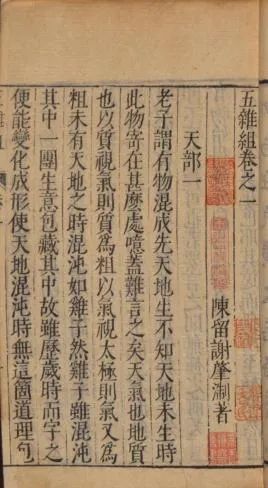 五雜組卷之一
陳留謝肇淛著
天部一
老子謂有物混成先天地生不知天地未生時
此物寄在甚麼處噫蓋難言之矣天氣也地質
也以質視氣則質為粗以氣視太極則氣又為
粗未有天地之時混沌如雞子然雞子雖混沌
其中一團生意包藏其中故雖歷歲時而字之
便能變化成形使天地混沌時無這箇道理句